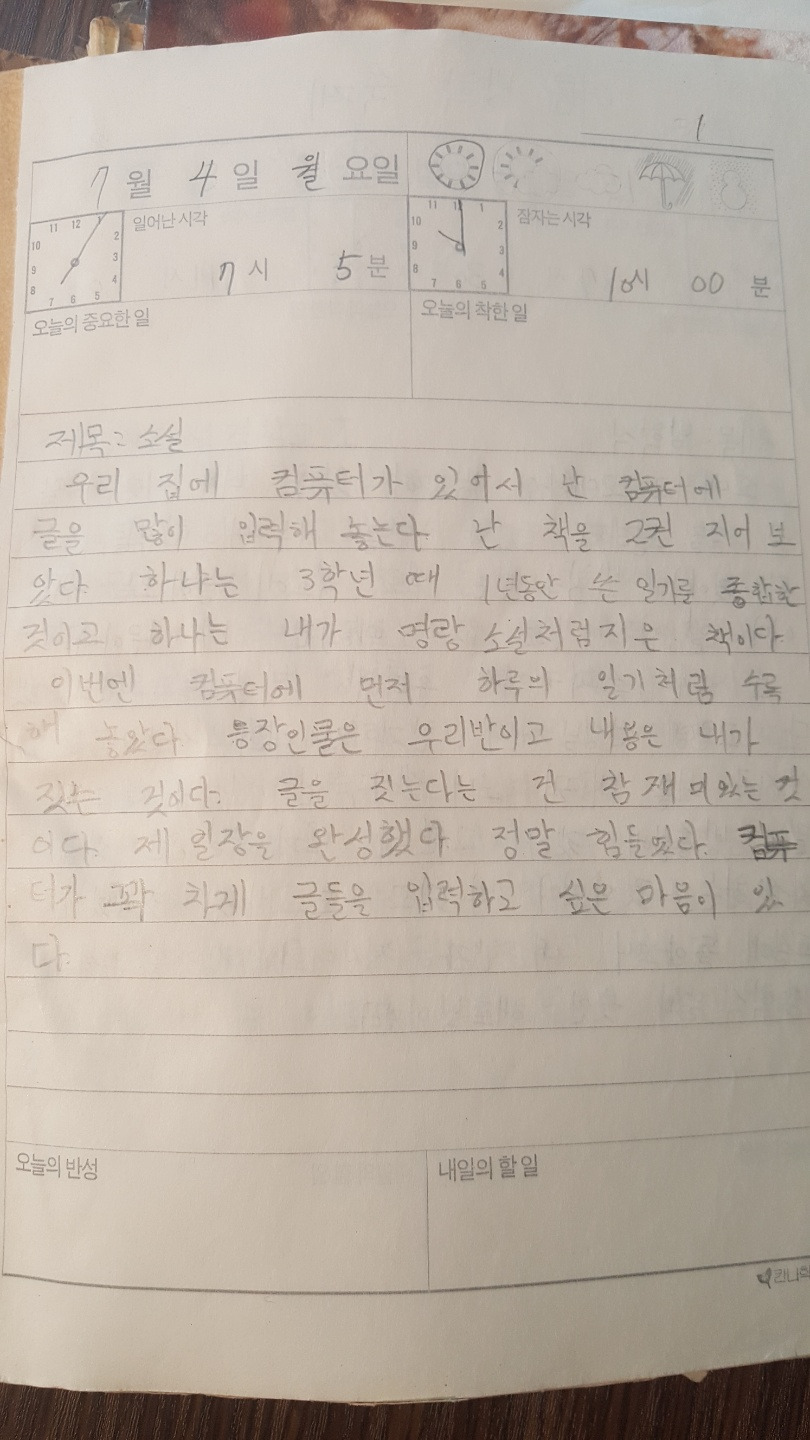 1
7월 4일 월요일
일어난 시각
7시 5분
잠자는 시각
10시 00분
오늘의 중요한 일
오늘의 착한 일
제목: 소설
우리 집에 컴퓨터가 있어서 난 컴퓨터에
글을 많이 입력해 놓는다. 난 책을 2권 지어 보
았다. 하나는 3학년 때 1년동안 쓴 일기를 종합한
것이고 하나는 내가 명랑 소설처럼 지은 책이다
이번엔 컴퓨터에 먼저 하루의 일기처럼 수록
해 놓았다. 등장인물은 우리반이고 내용은 내가
짓는 것이다. 글을 짓는다는 건 참 재미있는 것
이다. 제 일장을 완성했다. 정말 힘들었다. 컴퓨
터가 꽉 차게 글들을 입력하고 싶은 마음이 있
다.
오늘의 반성
내일의 할 일